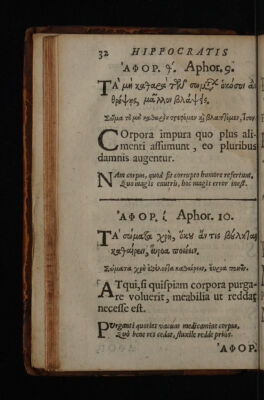 32 HIPPOCRATIS
ἈΦΟΡ. θ´. Aphor. 9.
Τὰ μὴ καθαρὰ σωμάτων ὁκόσον ἂν
θρέψῃς, μᾶλλον βλάψεις.
Σῶμα τὸ μὴ καθαρὸν
Corpora impura quo plus ali-
menti assumunt, eo pluribus
damnis augentur.
Nam corpus, quod sit corrupto humore refertum,
Quo magis enutris, hoc magis error inest.
ἈΦΟΡ. ί. Aphor. 10.
Τὰ σώματα χρὴ, ὅκου ἄν τις βούληται
καθαίρειν, εὔροα ποιέειν.
Σώματα χρὴ
Atqui, si quispiam corpora purga-
re voluerit, meabilia ut reddat
necesse est.
Purganti quoties vacuas medicamine corpus,
Quò bene res cedat, fluxile redde prius.
ἈΦΟΡ.